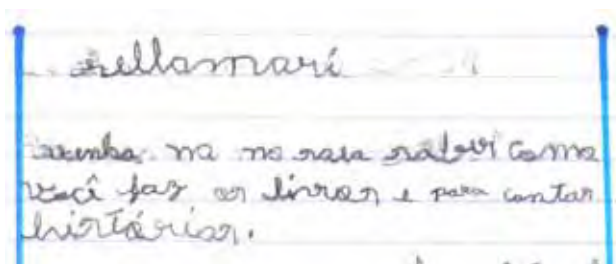 ellamari
venha na no sala como
você faz os livros e para contar
histórias.